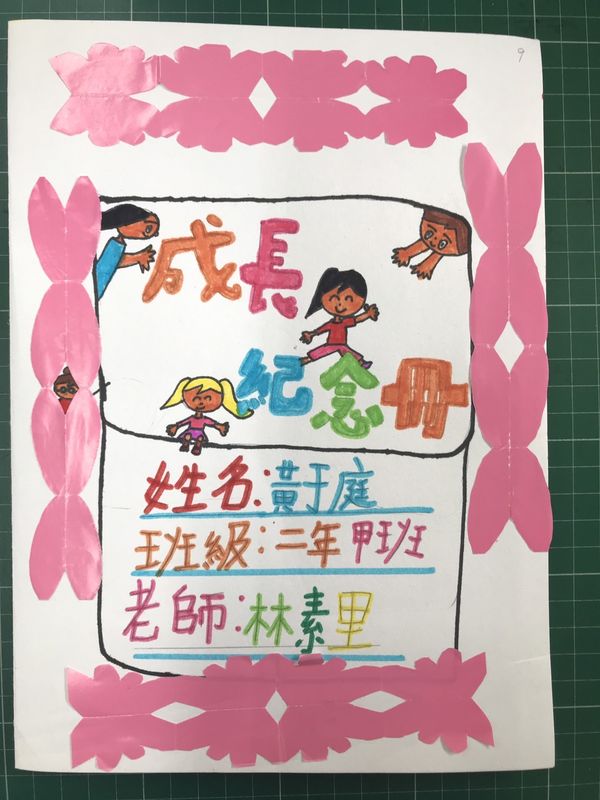 9
成長
紀念冊
姓名:黃于庭
班級:二年甲班
老師:林素里